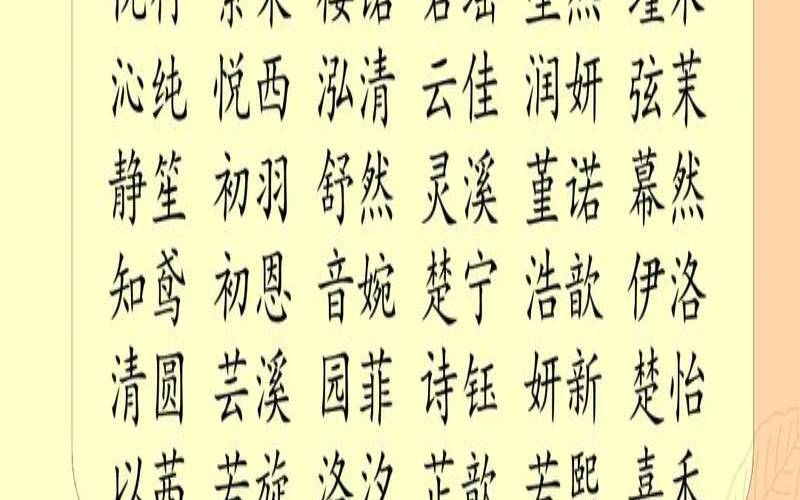 沁纯 悦西 泓清 云佳 润妍 弦茉
静笙 初羽 舒然 灵溪 堇诺 幕然
知鸢 初恩 音婉 楚宁 浩歆 伊洛
清圆 芸溪 园菲 诗钰 妍新 楚怡
以茜 若旋 洛汐 芷歆 若熙 喜禾